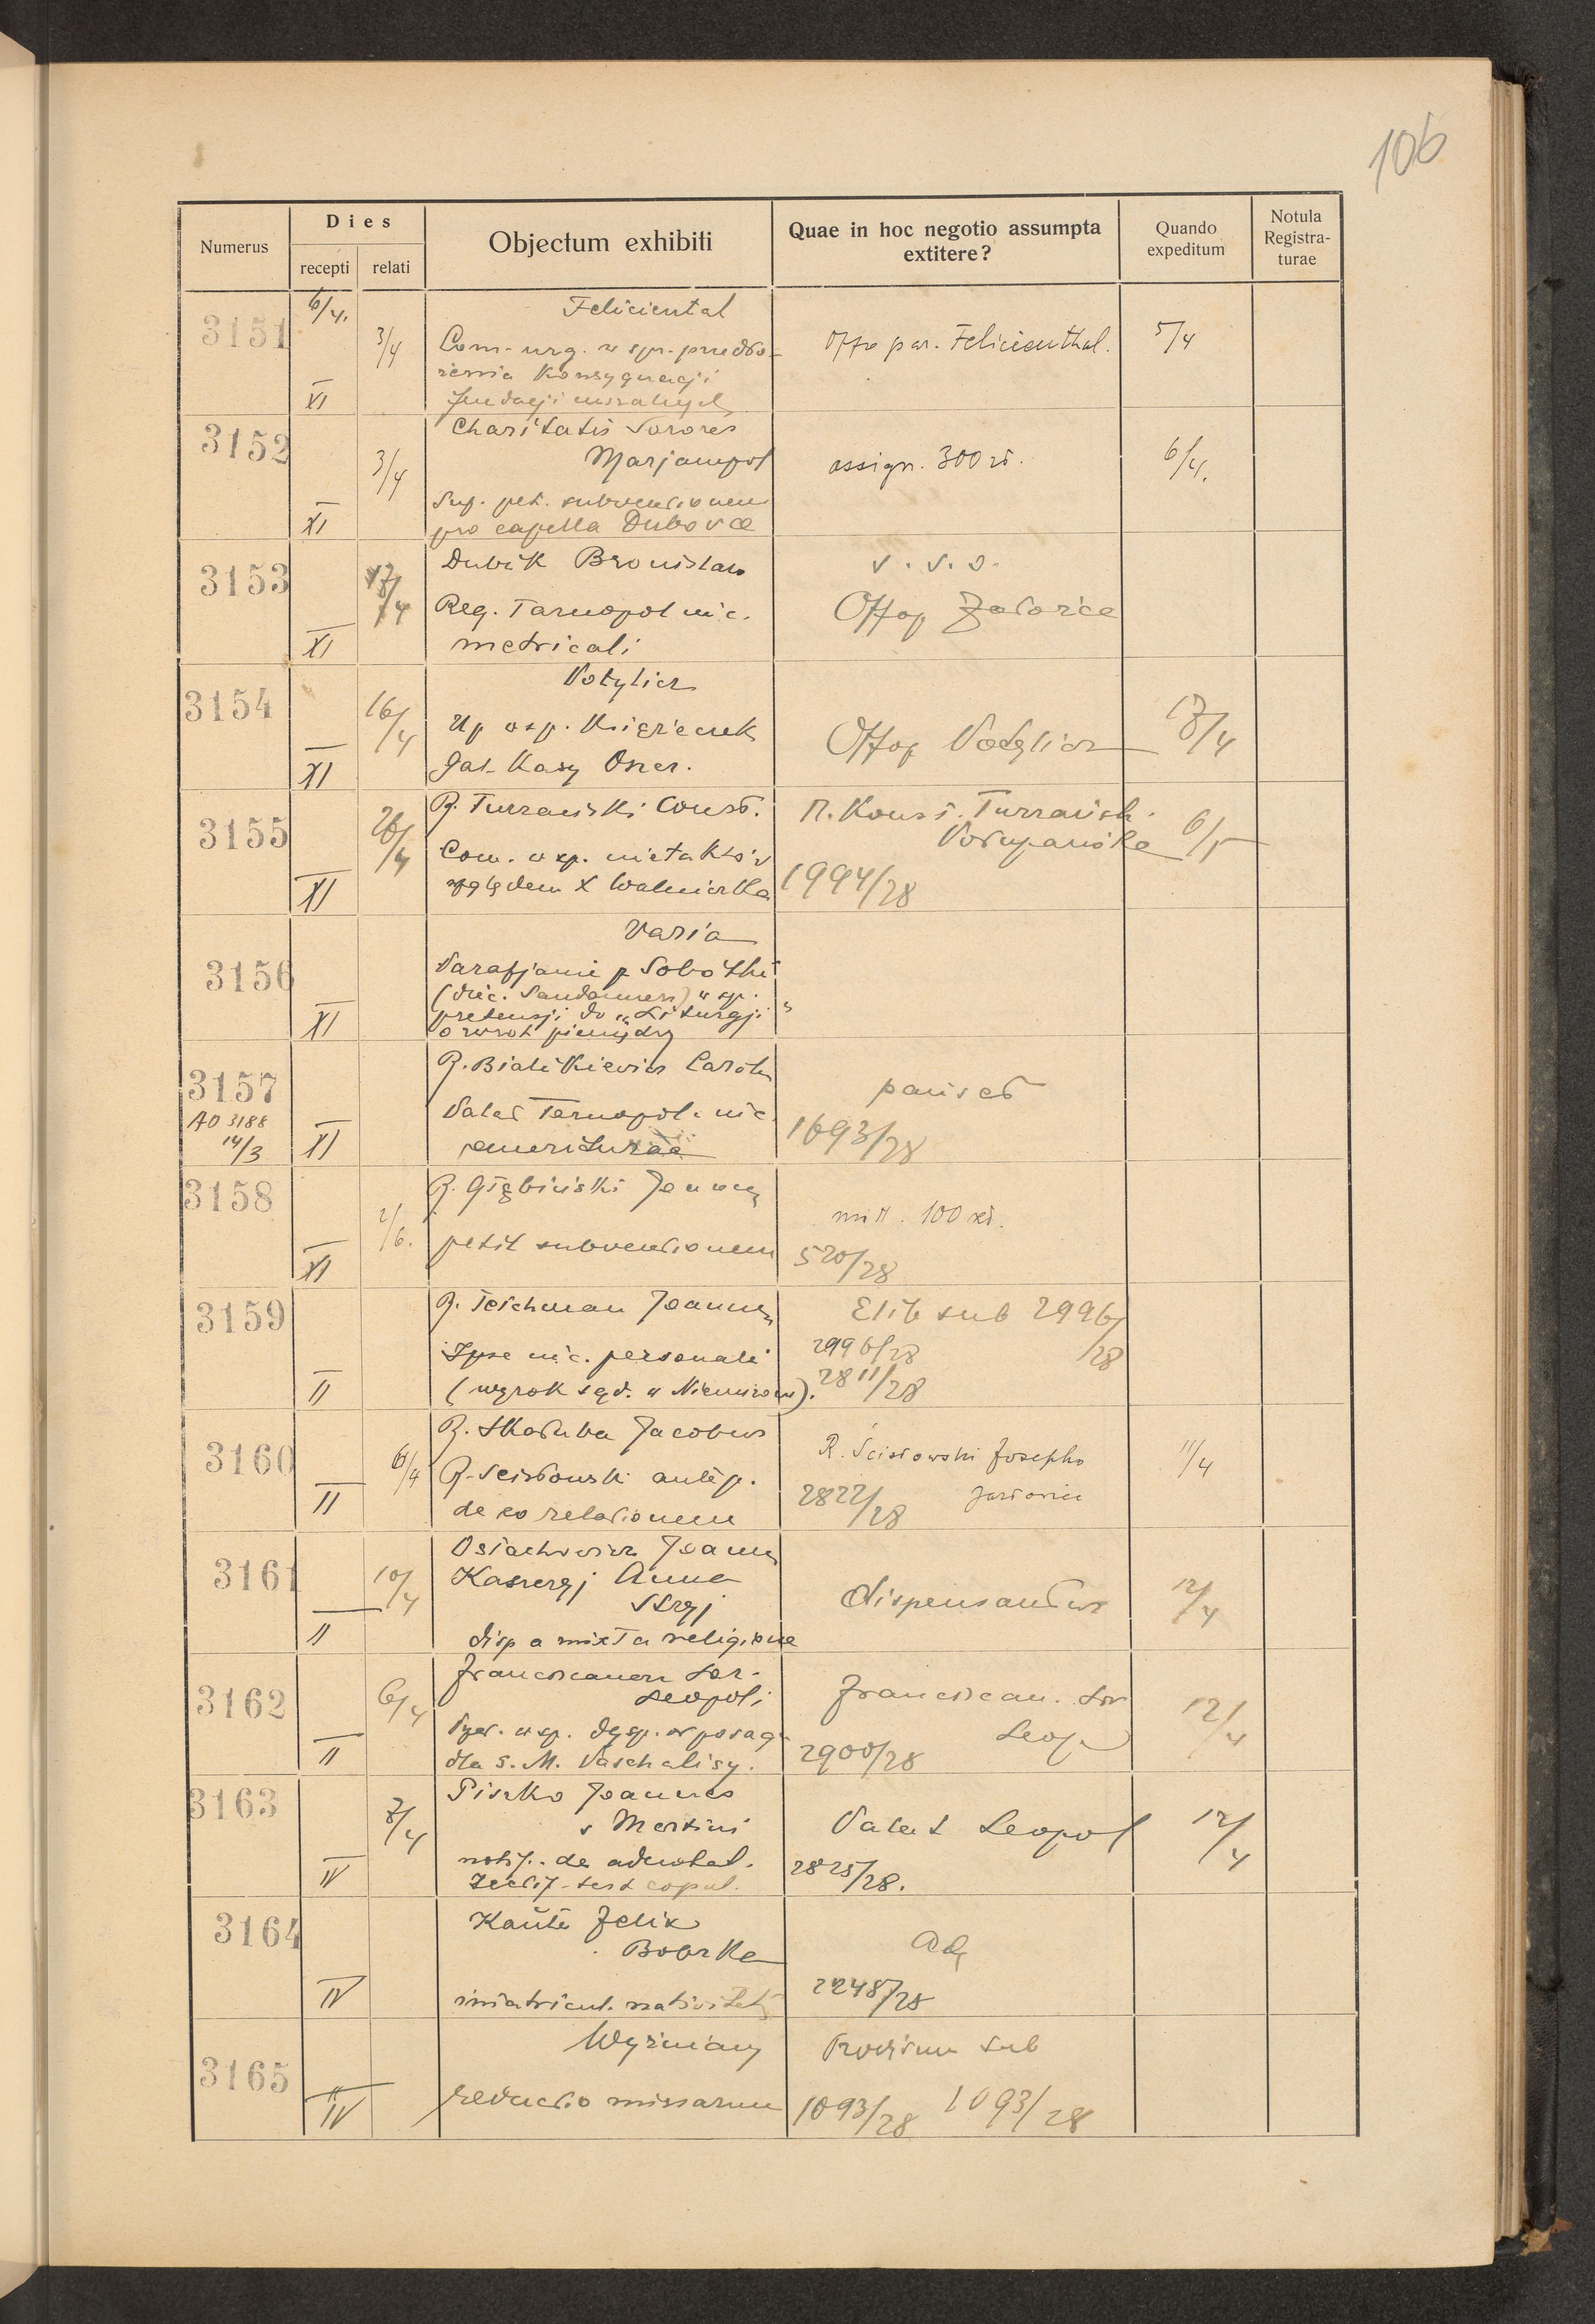 106
Numerus
Dies
recepti
relati
Objectum exhibiti
Quae in hoc negotio assumpta
extitere?
Quando
expeditum
Notula
Registra-
turae
3151
6/4.
3/4
XI
Feliciental
Com. urg. w spr. przedło-
żenia Konsygnacji
fundacji mszalnych
Offo par. Felicienthal.
5/4
3152
3/4
XI
Charitatis Sorores
Marjampol
Sup. pet. subventionem
pro capella Dubovce
assign. 300 zł.
6/4.
3153
/4
XI
Dubik Bronislaw
Reg. Tarnopol nic.
metricali
v. s. o.
Offop Załoźce
3154
16/4
XI
Potylicz
Up w sp. Książeczek
Gal. Kasy Oszcz.
Offop Potylicz
17/4
3155
26/4
XI
R. Turzański Const.
Com. w sp. nietaktów
względem X Walniczka
R. Konst. Turzański.
1994/28
6/5
3156
XI
Varia
Parafjanie p Sobótki
(diec. Sandomierz) w sp.
pretensji do "Liturgji"
o zwrot pieniędzy
3157
AD 3188
14/3
XI
R. Bialikiewicz Carolus
Palat Tarnopol. nic.
emerituraa
pauset
1693/28
3158
2/6.
XI
R. Głębiński Joannes
petit subventionem
mitt. 100 zł.
520/28
3159
II
R. Teichman Joannes
Ipse nic. personali
(wyrok sąd. w Niemirowie).
Elib sub 2996/28
2996/28
2811/28
3160
6/4
II
R. Skałuba Jacobus
R. Scisłowski antep.
de eo relationem
R. Ścisłowski Josepho
2822/28
11/4
3161
10/4
II
Ostachowicz Joannes
Kaszczyj Anna
Stryj
disp a mixta religione
dispensantur
12/4
3162
6/4
II
Franciscanen Sor.
Leopoli
w sp. dysp. w posagu
dla S. M. Paschalisy.
Franciscan. Sor
Leop.
2900/28
12/4
3163
7/4
IV
Piszko Joannes
s Martini
notif. de adnotat.
test copul.
Palat Leopol
2825/28.
12/4
3164
IV
Kaute Felix
Bobrka
immatricul. nativitatis
Ad
2248/28
3165
IV
Wyżniany
reductio missarum
Provisum sub
1093/28 1093/28